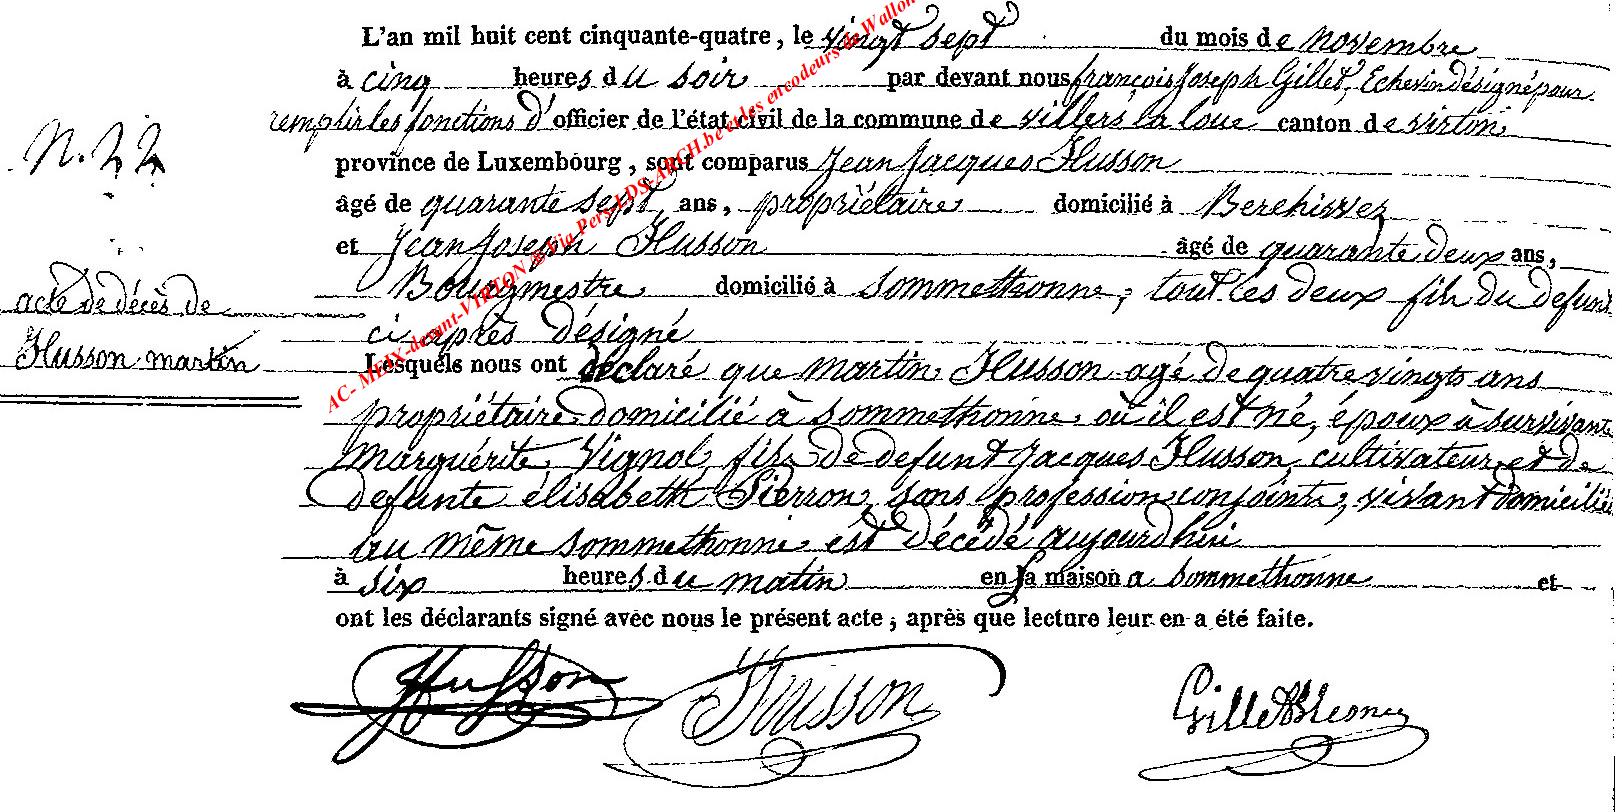 L'an mil huit cent cinquante-quatre, le vingt sept du mois de novembre
à cinq heures du soir par devant nous françois Joseph Gillet, Echevin désigné pour
remplir les fonctions d'officier de l'état civil de la commune de villers la loue canton de virton,
N. 22
province de Luxembourg, sont comparus Jean Jacques Husson
âgé de quarante sept ans, propriétaire domicilié à Berchivez
et Jean Joseph Husson âgé de quarante deux ans,
Bourgmestre domicilié à Sommethonne, tout les deux fils du defunt
acte de décès de
ci après désigné
Husson martin
Lesquels nous ont déclaré que martin Husson agé de quatre vingts ans
propriétaire domicilié à Sommethonne, où il est né, époux à survivante
Marguérite Vignol, fils de defunt Jacques Husson, cultivateur, et de
defunte élisabeth Pierron, sans profession, conjoints, vivant domiciliés
au même Sommethonne est décédé aujourdhui
à six heures du matin en sa maison a Sommethonne et
ont les déclarants signé avec nous le présent acte, après que lecture leur en a été faite.
Husson Husson Gillet
AC- MEIX-devant-VIRTON Via Pers LDS-ARCH.be et les encodeurs de Wallon